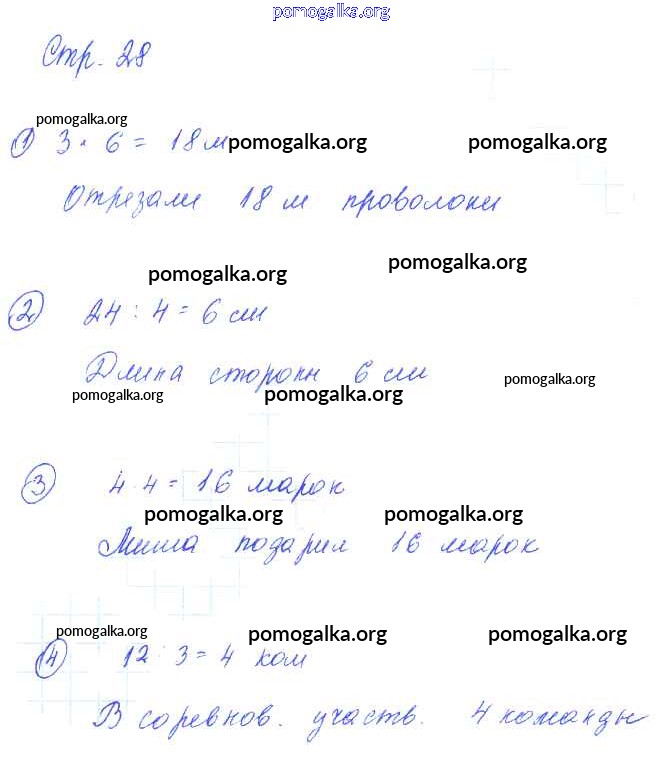 pomogalka.org
Стр. 28
pomogalka.org
① 3 · 6 = 18 м
pomogalka.org pomogalka.org
Отрезали 18 м проволоки
pomogalka.org pomogalka.org
② 24 : 4 = 6 см
Длина стороны 6 см
pomogalka.org pomogalka.org pomogalka.org
③ 4 · 4 = 16 марок
pomogalka.org pomogalka.org
Миша подарил 16 марок
pomogalka.org pomogalka.org pomogalka.org
④ 12 : 3 = 4 ком
В соревнов. участв. 4 команды